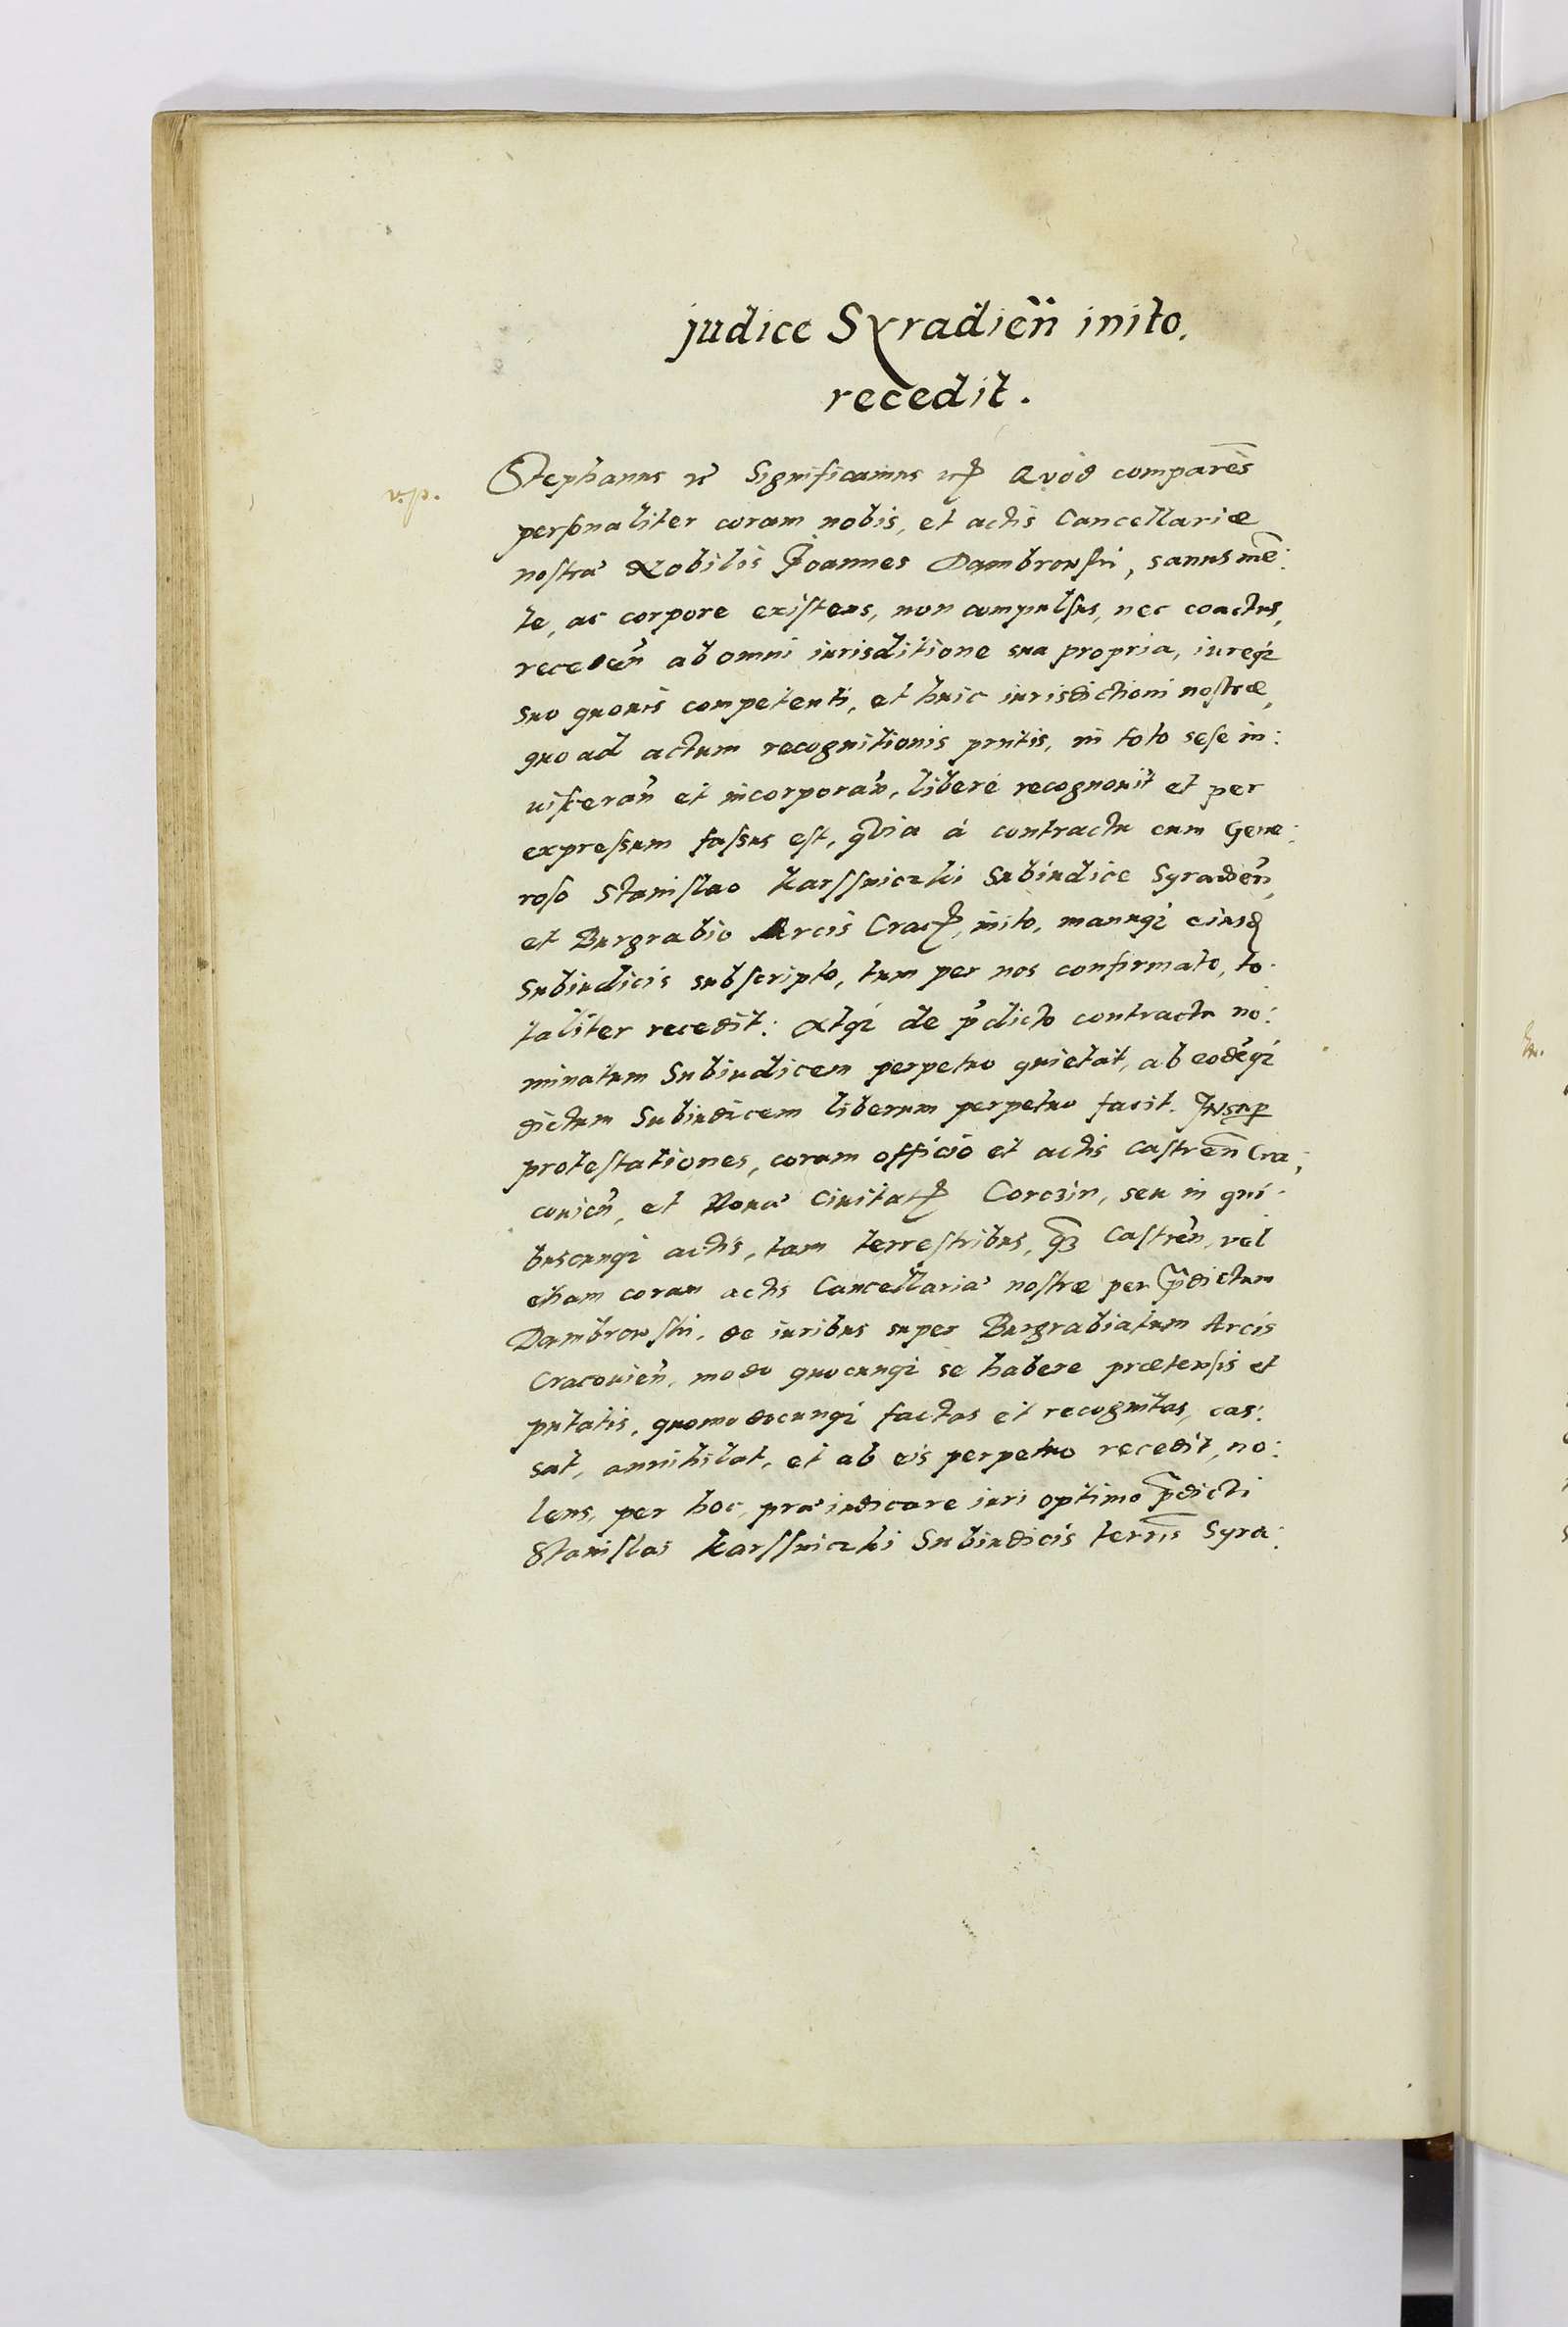 judice Syradien̄ inito.
recedit.
v. p.
Stephanus Significamus Quod comparēs
personaliter coram nobis, et actis Cancellariæ
nostræ Nobilis Joannes Dambrowski, sanus mē:
te, ac corpore existens, non compulsus, nec coactus,
receden̄ ab omni iurisditione sua propria, iureq;
suo quovis competenti, et huic iurisdictioni nostræ,
quo ad actum recognitionis pn̄tis, in toto sese in:
visceran̄ et incorporan̄, liberè recognovit et per
expressum fassus est, quia à contractu cum Gene:
roso Stanislao Karssniczki Subiudice Syradien̄,
et Burgrabio Arcis Crac, inito, manuq; eiusd
Subiudicis subscripto, tum per nos confirmato, to:
taliter recedit: Atq; de p̄dicto contractu no:
minatum Subiudicem perpetuo quietat, ab eodēq;
dictum Subiudicem liberum perpetuo facit. Insup
protestationes, coram officio et actis castren̄ Cra:
covien̄, et Nova Civitat Corczin, seu in qui:
buscunq; actis, tam terrestribus, q̄3 Castren̄, vel
etiam coram actis Cancellariæ nostræ per p̄dictum
Dambrowski, de iuribus super Burgrabiatum Arcis
Cracovien̄, modo quocunq; se habere prætensis et
putatis, quomodocunq; factas et recognitas, cas:
sat, annihilat, et ab eis perpetuo recedit, no:
lens, per hoc, præiudicare iuri optimo p̄dicti
Stanislai Karssniczki Subiudicis terrīs Syra: